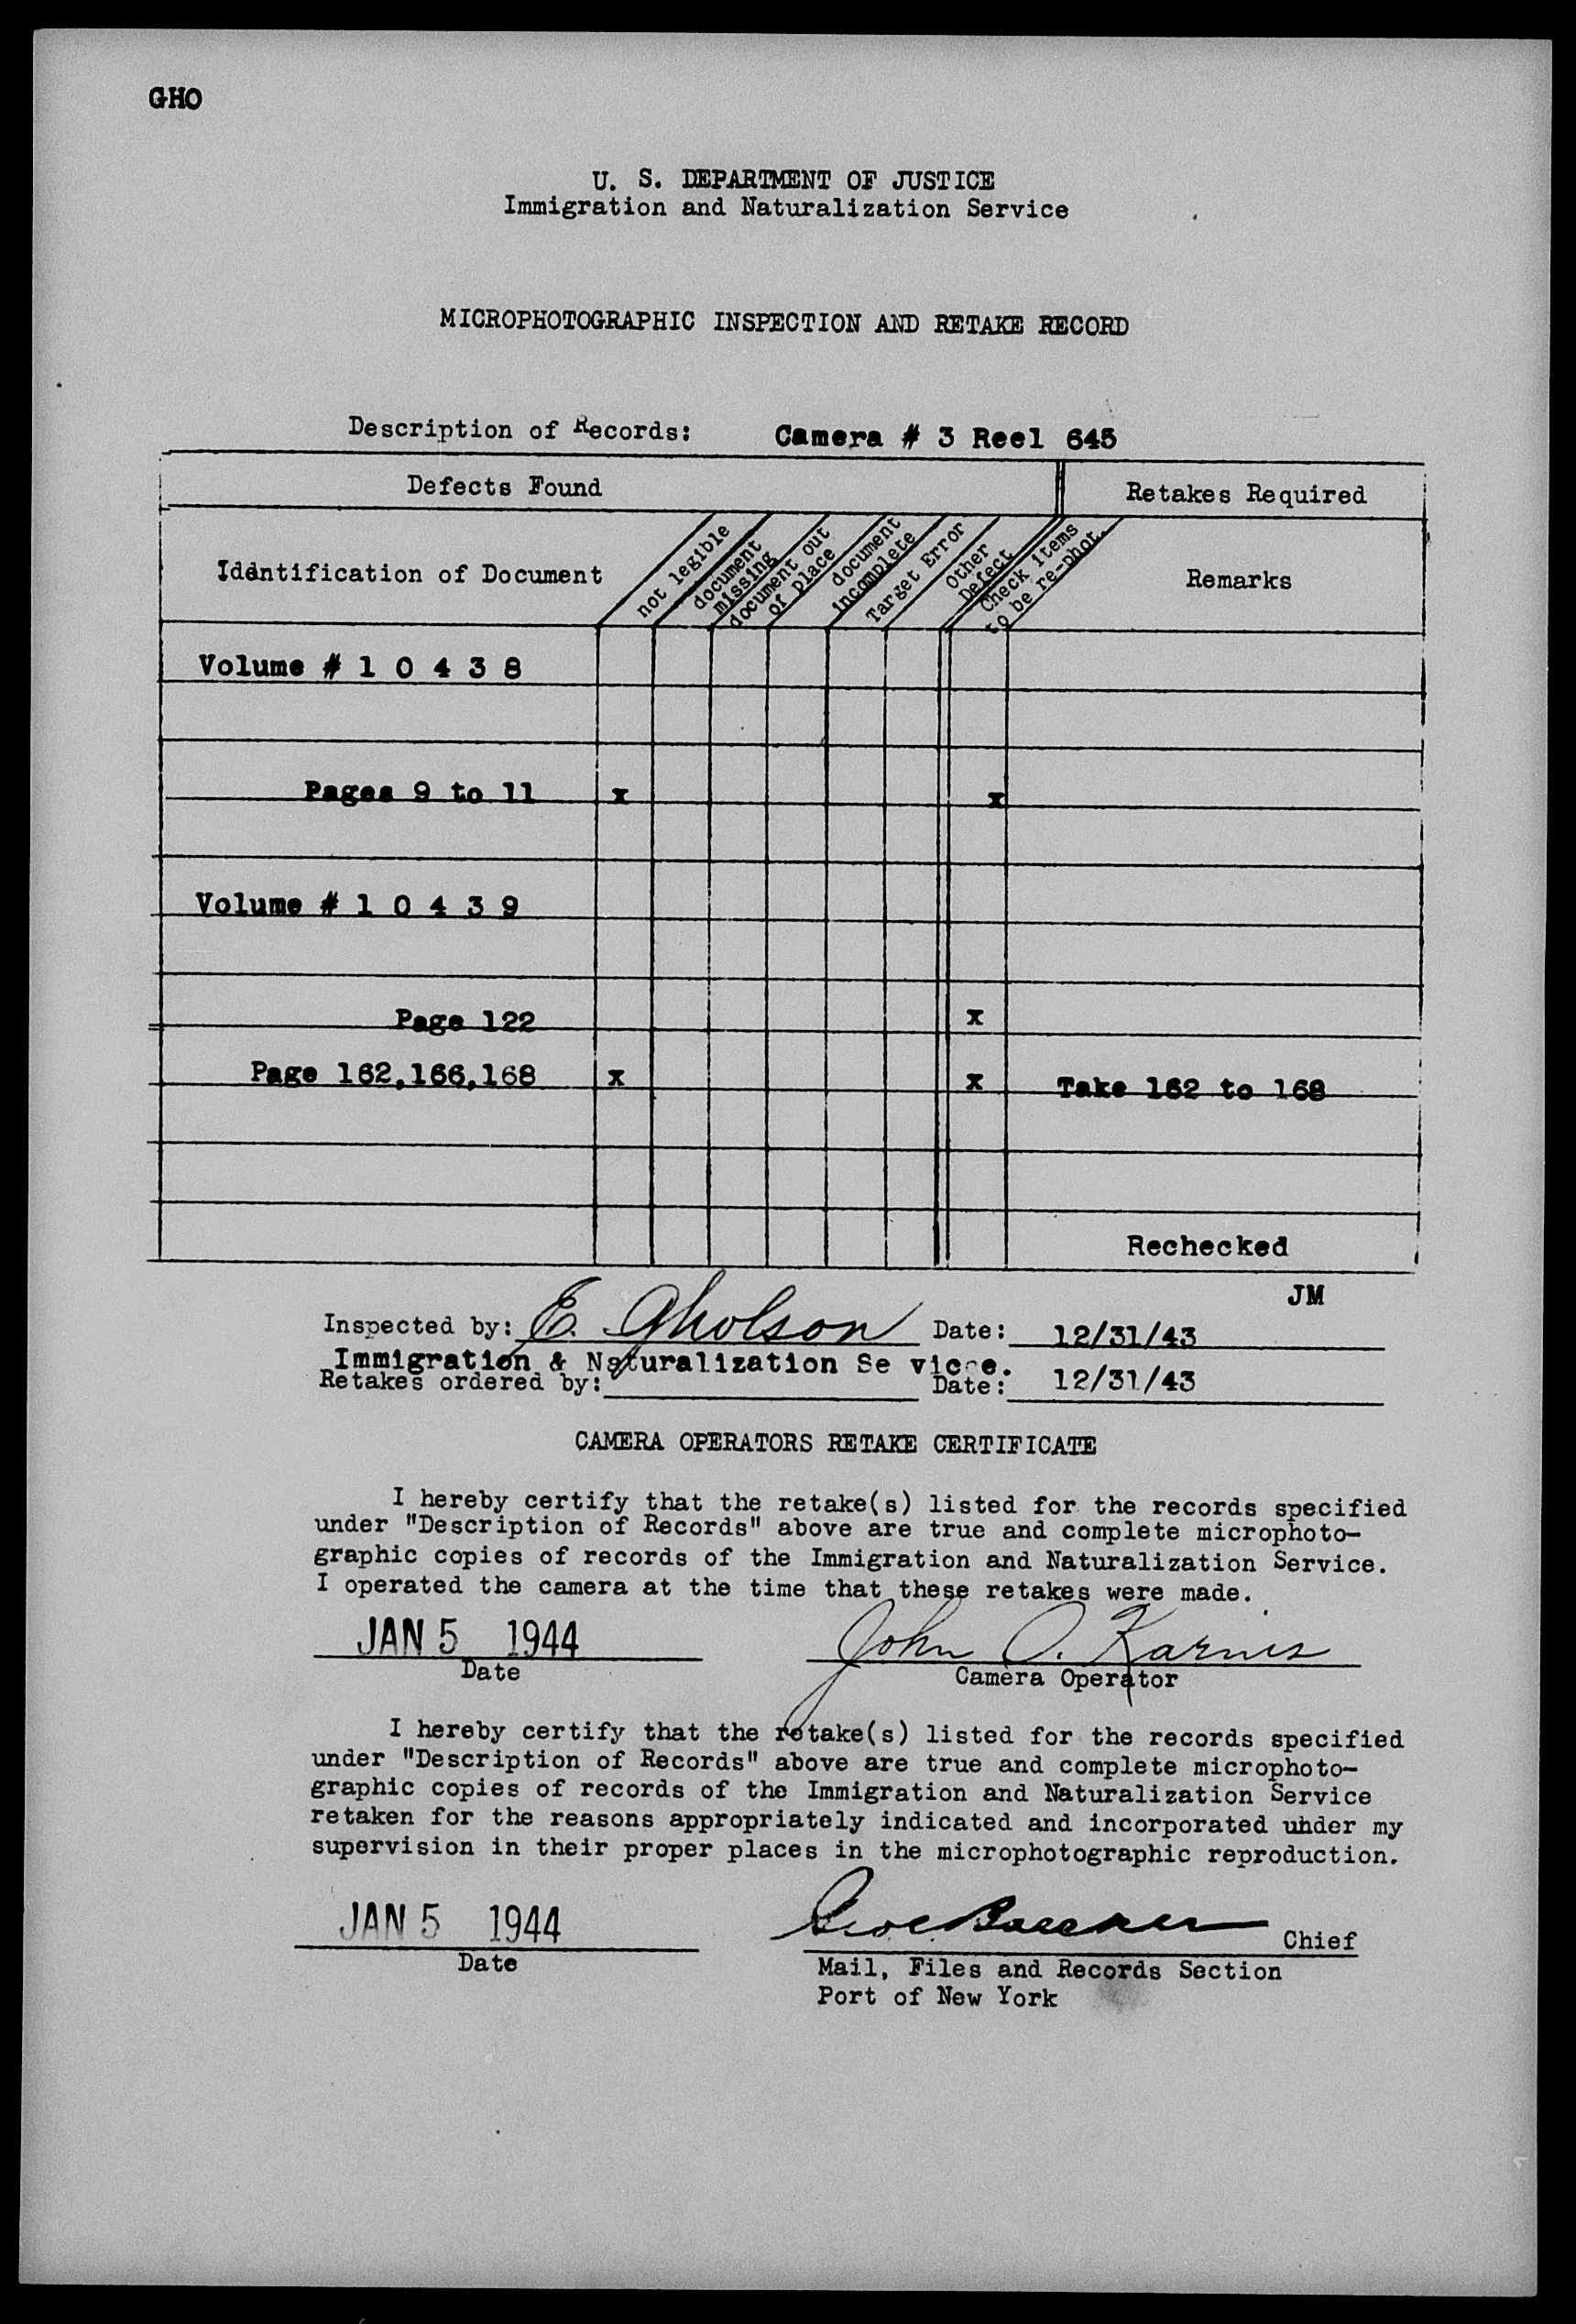 GHO
U. S. DEPARTMENT OF JUSTICE
Immigration and Naturalization Service
MICROPHOTOGRAPHIC INSPECTION AND RETAKE RECORD
Description of Records: Camera # 3 Reel 645
Defects Found
Retakes Required
Identification of Document
not legible
document missing
document out of place
document incomplete
Target Error
Other Defect
Check items to be re-phot.
Remarks
Volume # 1 0 4 3 8
Pages 9 to 11 x x
Volume # 1 0 4 3 9
Page 122 x
Page 162,166,168 x x Take 162 to 168
Rechecked
JM
Inspected by: E. Gholson Date: 12/31/43
Immigration & Naturalization Se vice.
Retakes ordered by: Date: 12/31/43
CAMERA OPERATORS RETAKE CERTIFICATE
I hereby certify that the retake(s) listed for the records specified
under "Description of Records" above are true and complete microphoto-
graphic copies of records of the Immigration and Naturalization Service.
I operated the camera at the time that these retakes were made.
JAN 5 1944 John O. Karnes
Date Camera Operator
I hereby certify that the retake(s) listed for the records specified
under "Description of Records" above are true and complete microphoto-
graphic copies of records of the Immigration and Naturalization Service
retaken for the reasons appropriately indicated and incorporated under my
supervision in their proper places in the microphotographic reproduction.
JAN 5 1944 Chief
Date Mail, Files and Records Section
Port of New York